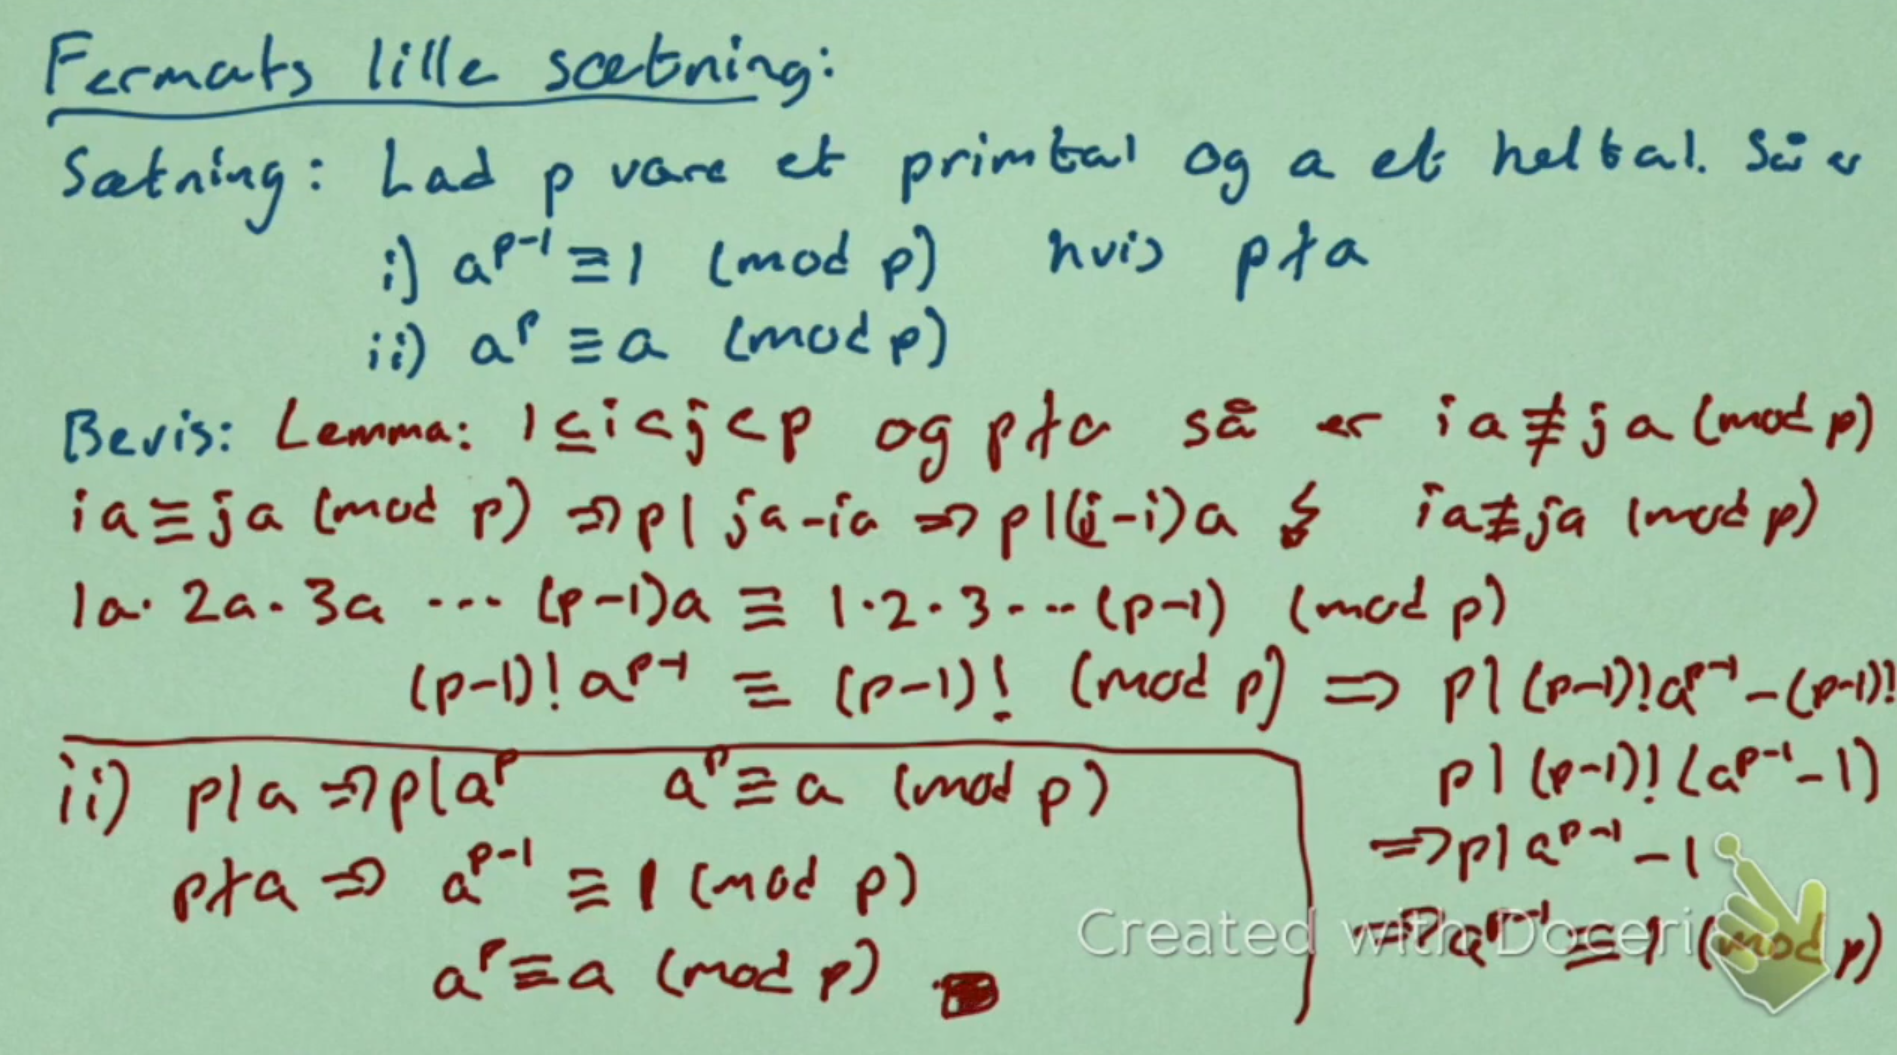 Fermats lille sætning:
Sætning: Lad p være et primtal og a et heltal. Så er
i) a^{p-1} ≡ 1 (mod p) hvis p∤a
ii) a^p ≡ a (mod p)
Bevis: Lemma: 1 ≤ i < j < p og p∤a så er ia ≢ ja (mod p)
ia ≡ ja (mod p) ⇒ p | ja - ia ⇒ p | (j-i)a ↯ ia ≢ ja (mod p)
1a · 2a · 3a ··· (p-1)a ≡ 1·2·3···(p-1) (mod p)
(p-1)! a^{p-1} ≡ (p-1)! (mod p) ⇒ p | (p-1)! a^{p-1} - (p-1)!
p | (p-1)! (a^{p-1} - 1)
⇒ p | a^{p-1} - 1
⇒ a^{p-1} ≡ 1 (mod p)
ii) p | a ⇒ p | a^p a^p ≡ a (mod p)
p∤a ⇒ a^{p-1} ≡ 1 (mod p)
a^p ≡ a (mod p)
Created with Doceri